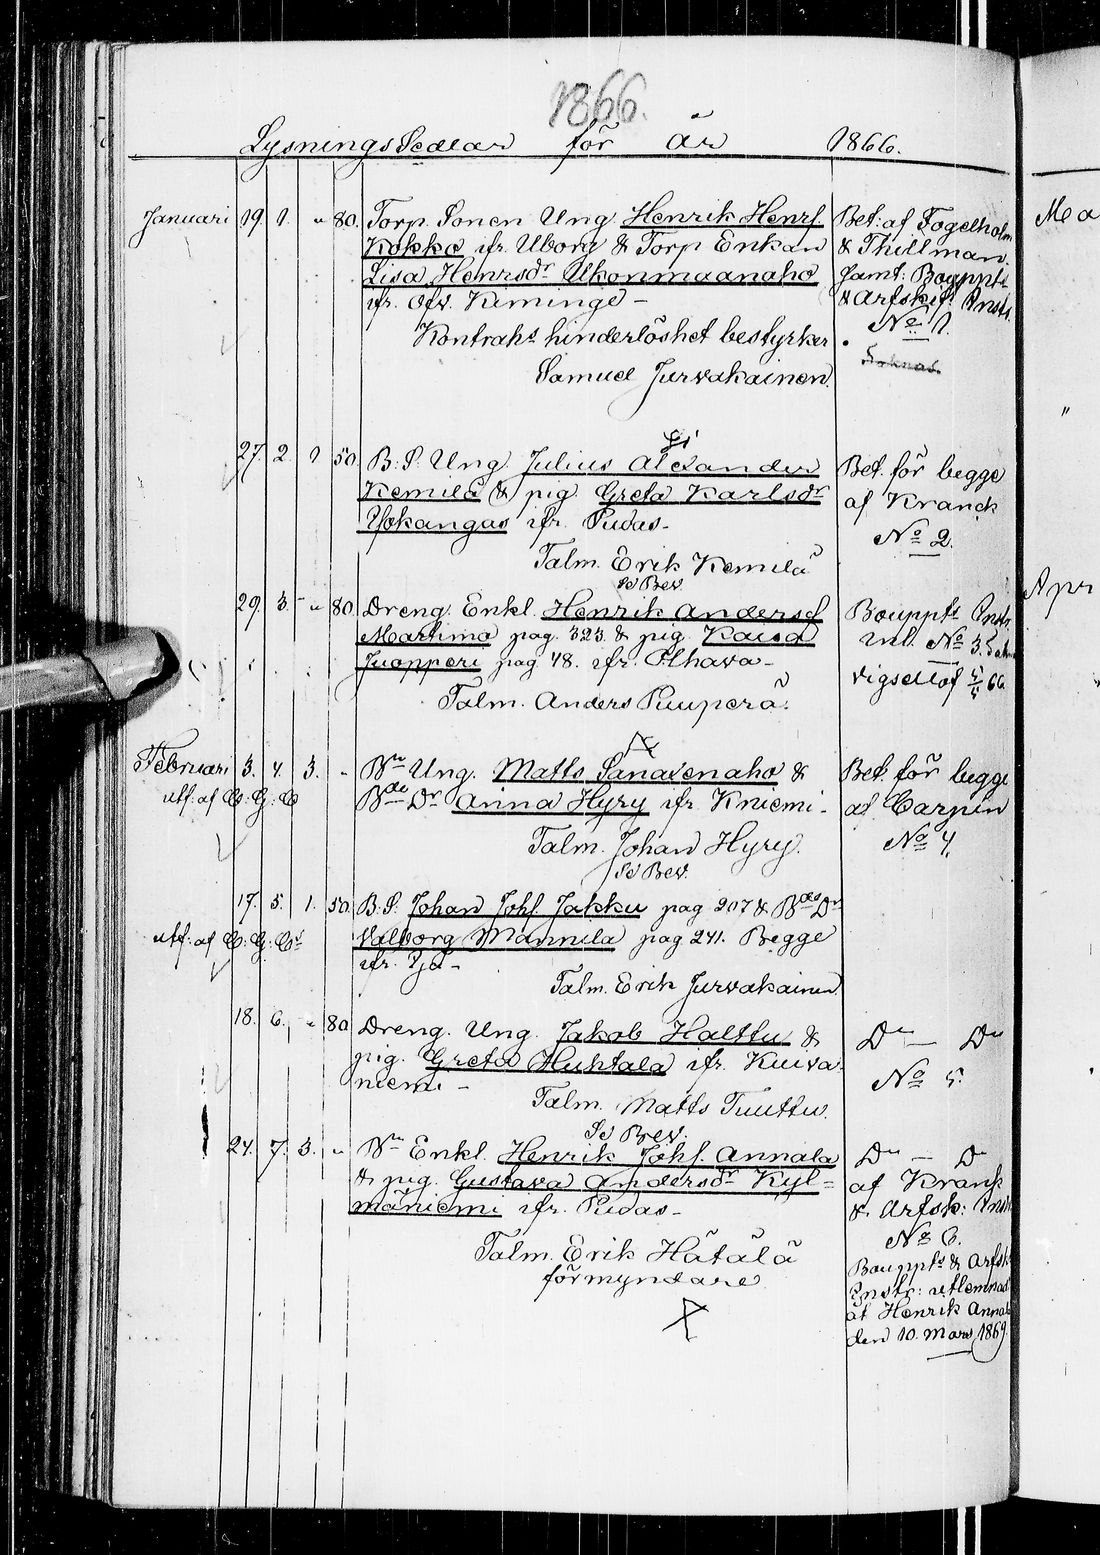 1866.
Lysnings Sedlar för år 1866.
Januari 19. 1. " 80. Torp. Sonen Ung. Henrik Henrs.
Kokko ifr. Uborg & Torp Enkan
Lisa Henrsdr Ukonmaanaho
ifr. Ofv. Kiminge -
Kontrahs hinderlöshet bestyrker
Samuel Jurvakainen.
Bet: af Fogelholm
& Thillman.
Jämt: Bouppts
& Arfskif. Instr.
No 1.
Saknas.
27. 2. 1 50. B. S. Ung. Julius Alexander
Kemilä & pig. Greta Karlsdr
Yokangas ifr. Pudas -
Talm. Erik Kemilä
Bet. för begge
af Kranck
No 2.
Sd Bev.
29. 3. - " 80. Dreng. Enkl. Henrik Andersf
Martima pag. 323. & pig. Kaisa
Juopperi pag 48. ifr. Olhava -
Talm. Anders Puuperä.
Bouppts Instr
inl. No 3. Sakn
vigsellöf 5/5 66
Februari 3. 4. 3. - Bn Ung. Matts Sanavenaho &
utf: af C: G: C
Bde Dr Anna Hyry ifr. Kniemi -
Talm. Johan Hyry.
Bet. för begge
af Carpén
No 4.
Sd Bev.
17. 5. 1. 50. B. S. Johan Johs. Jakku pag 207 & Bdes Dr
utf: af C: G: Cs
Valborg Mannila pag 241. Begge
ifr. Ijå -
Talm. Erik Jurvakainen
18. 6. - " 80 Dreng. Ung. Jakob Halttu &
pig. Greta Huhtala ifr. Kuiva-
niemi -
Talm. Matts Tuuttu.
Do — Do
No 5.
Sd Bev.
24. 7. 3. " Bn Enkl. Henrik Johs. Annala
& pig. Gustava Andersdr Kyl=
mäniemi ifr. Pudas -
Talm. Erik Hätälä
förmyndare
Do — Do
af Krank
& Arfsk: Instr
No 6.
Bouppts & Arfsk:
Instr: utlemnas
åt Henrik Annala
den 10 Mars 1869.
Apr